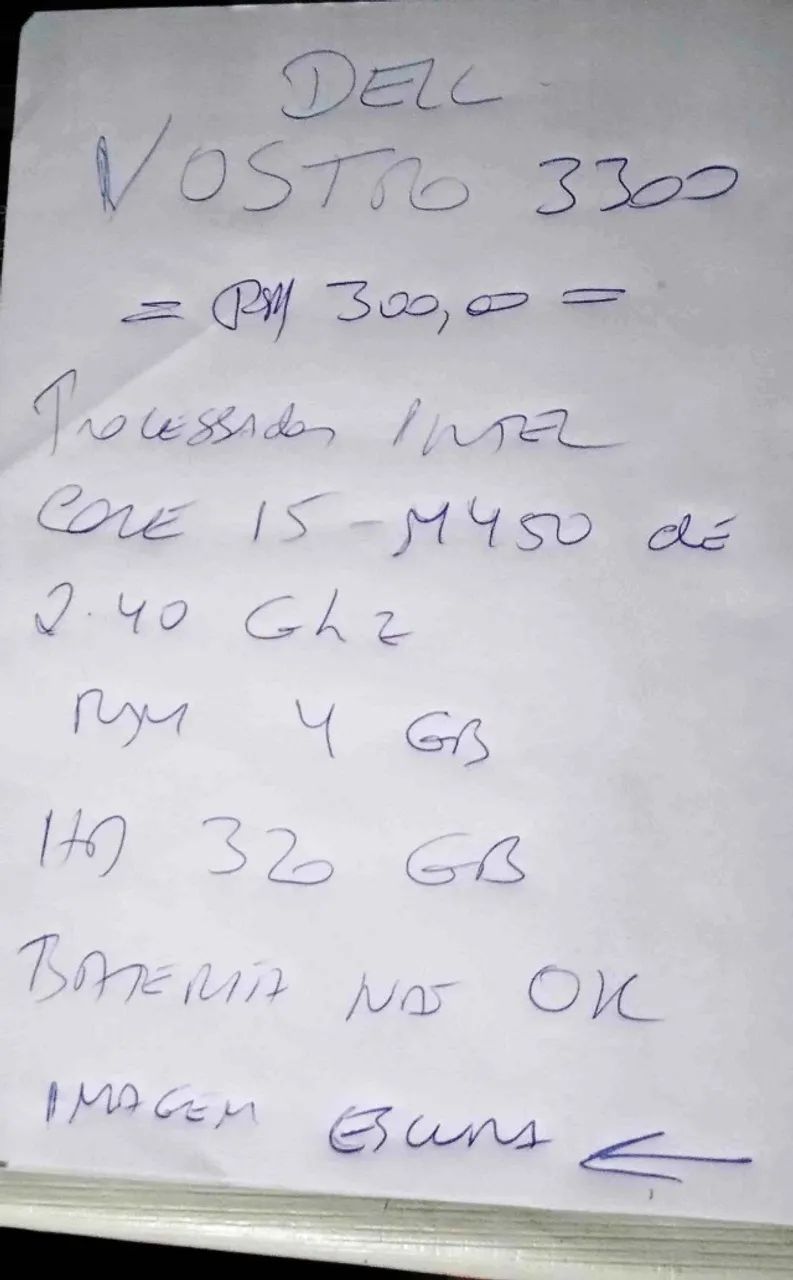 DELL
VOSTRO 3300
= R$ 300,00 =
Processador INTEL
CORE I5-M450 dE
2.40 Ghz
RAM 4 GB
HD 320 GB
BATERIA NÃO OK
IMAGEM ESCURA ←